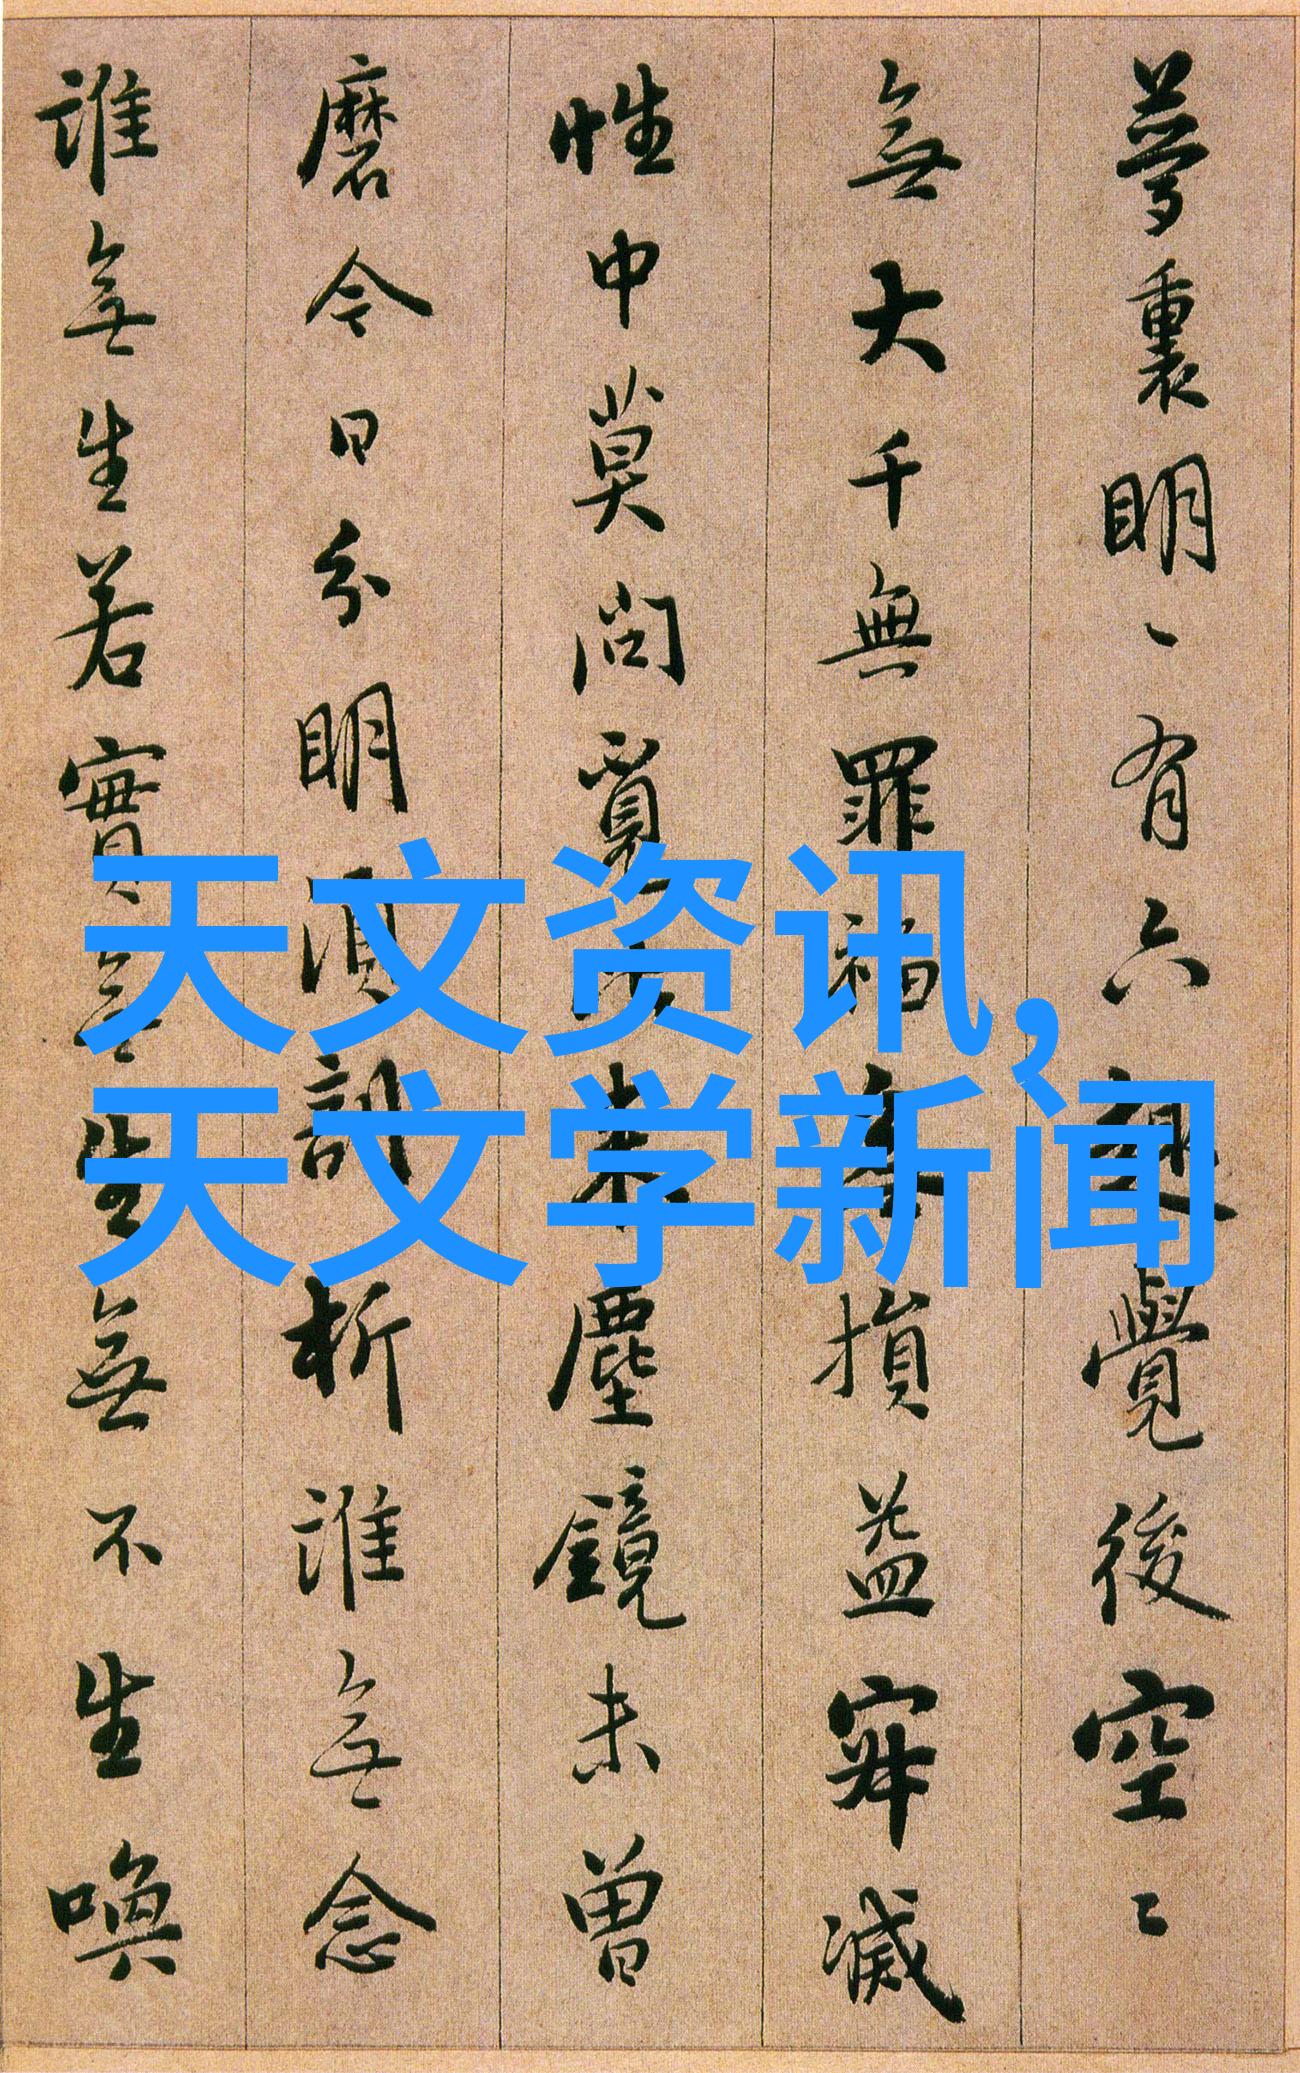 天文资讯,
天文学新闻
夢裏明〻有六趣覺後空〻
無大千無罪福無損益寂滅
性中莫問覓來塵鏡未曾
磨今日分明須剖析誰無念
誰無生若實無生無不生喚